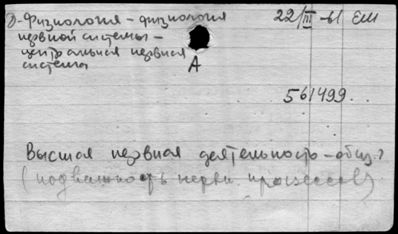 Д-Физиология - физиология
нервной системы -
центральная нервная
система
22/III-61 ЕШ
А
561499..
Высшая нервная деятельность - общ.?
(подвижность нервн. процессов)